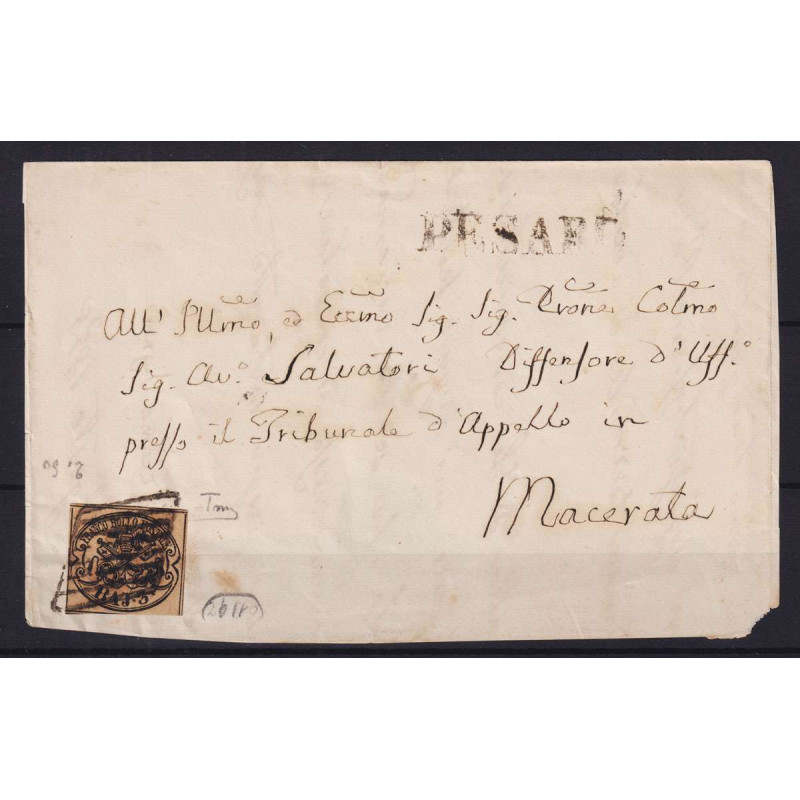 PESARO
All' Illmo, ed Eccmo Sig. Sig. Prone Colmo
Sig. Av.o Salvatori Diffensore d'Uff.o
presso il Tribunale d'Appello in
Macerata
FRANCO BOLLO POSTALE
BAJ. 3